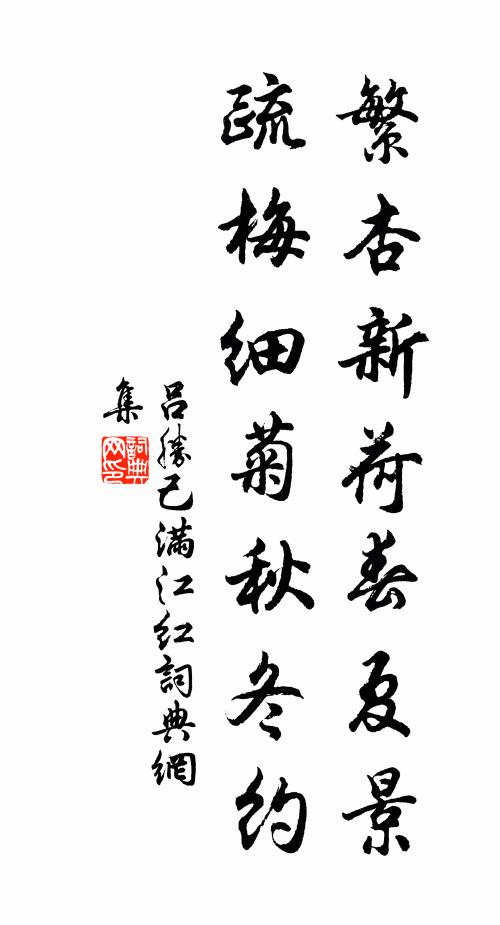 繁杏新荷春夏景
疏梅细菊秋冬约
吕勝己满江红詞典網
集
詞典網印